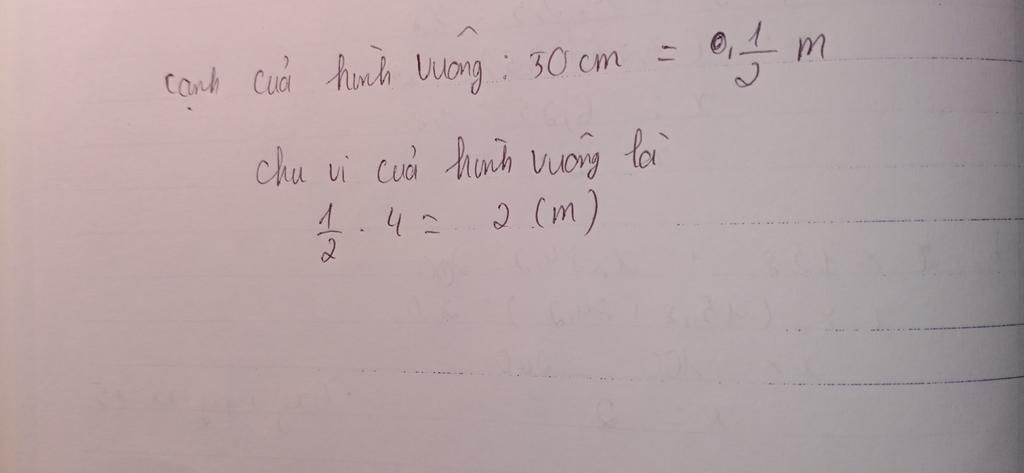 cạnh cuả hình vuông : 50 cm = 0, 1/2 m
chu vi cuả hình vuông là
1/2 . 4 = 2 (m)